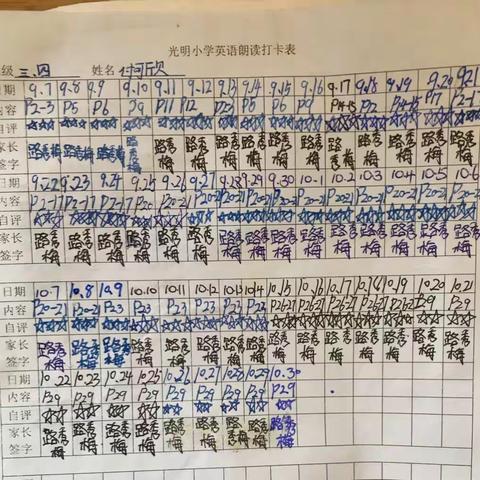 光明小学英语朗读打卡表
级 三.四 姓名 付柯欣
日期 9.7 9.8 9.9 9.10 9.11 9.12 9.13 9.14 9.15 9.16 9.17 9.18 9.19 9.20 9.21
内容 P2-3 P5 P6 P9 P11 P12 P23 P5 P6 P9 P14-15 P22 P14-15 P17 P2-17
自评 ☆☆☆ ☆☆☆ ☆☆☆ ☆☆☆ ☆☆☆ ☆☆☆ ☆☆☆ ☆☆☆ ☆☆☆ ☆☆☆ ☆☆☆ ☆☆☆ ☆☆☆ ☆☆☆ ☆☆☆
家长签字 路秀梅 路秀梅 路秀梅 路秀梅 路秀梅 路秀梅 路秀梅 路秀梅 路秀梅 路秀梅 路秀梅 路秀梅 路秀梅 路秀梅 路秀梅
日期 9.22 9.23 9.24 9.25 9.26 9.27 9.28 9.29 9.30 10.1 10.2 10.3 10.4 10.5 10.6
内容 P2-17 P2-17 P2-17 P20 P20-21 P20-21 P20-21 P20-21 P20-21 P20-21 P20-21 P20-21 P20-21 P20-21 P20-21
自评 ☆☆☆ ☆☆☆ ☆☆☆ ☆☆☆ ☆☆☆ ☆☆☆ ☆☆☆ ☆☆☆ ☆☆☆ ☆☆☆ ☆☆☆ ☆☆☆ ☆☆☆ ☆☆☆ ☆☆☆
家长签字 路秀梅 路秀梅 路秀梅 路秀梅 路秀梅 路秀梅 路秀梅 路秀梅 路秀梅 路秀梅 路秀梅 路秀梅 路秀梅 路秀梅 路秀梅
日期 10.7 10.8 10.9 10.10 10.11 10.12 10.13 10.14 10.15 10.16 10.17 10.18 10.19 10.20 10.21
内容 P20-21 P20-21 P23 P23 P23 P23 P23 P23 P26-27 P26-27 P26-27 P26-27 P26-27 P29 P29
自评 ☆☆☆ ☆☆☆ ☆☆☆ ☆☆☆ ☆☆☆ ☆☆☆ ☆☆☆ ☆☆☆ ☆☆☆ ☆☆☆ ☆☆☆ ☆☆☆ ☆☆☆ ☆☆☆ ☆☆☆
家长签字 路秀梅 路秀梅 路秀梅 路秀梅 路秀梅 路秀梅 路秀梅 路秀梅 路秀梅 路秀梅 路秀梅 路秀梅 路秀梅 路秀梅 路秀梅
日期 10.22 10.23 10.24 10.25 10.26 10.27 10.28 10.29 10.30
内容 P29 P29 P29 P29 P29 P29 P29 P29 P29
自评 ☆☆ ☆☆ ☆☆ ☆☆ ☆☆ ☆☆ ☆☆ ☆☆ ☆☆
家长签字 路秀梅 路秀梅 路秀梅 路秀梅 路秀梅 路秀梅 路秀梅 路秀梅 路秀梅